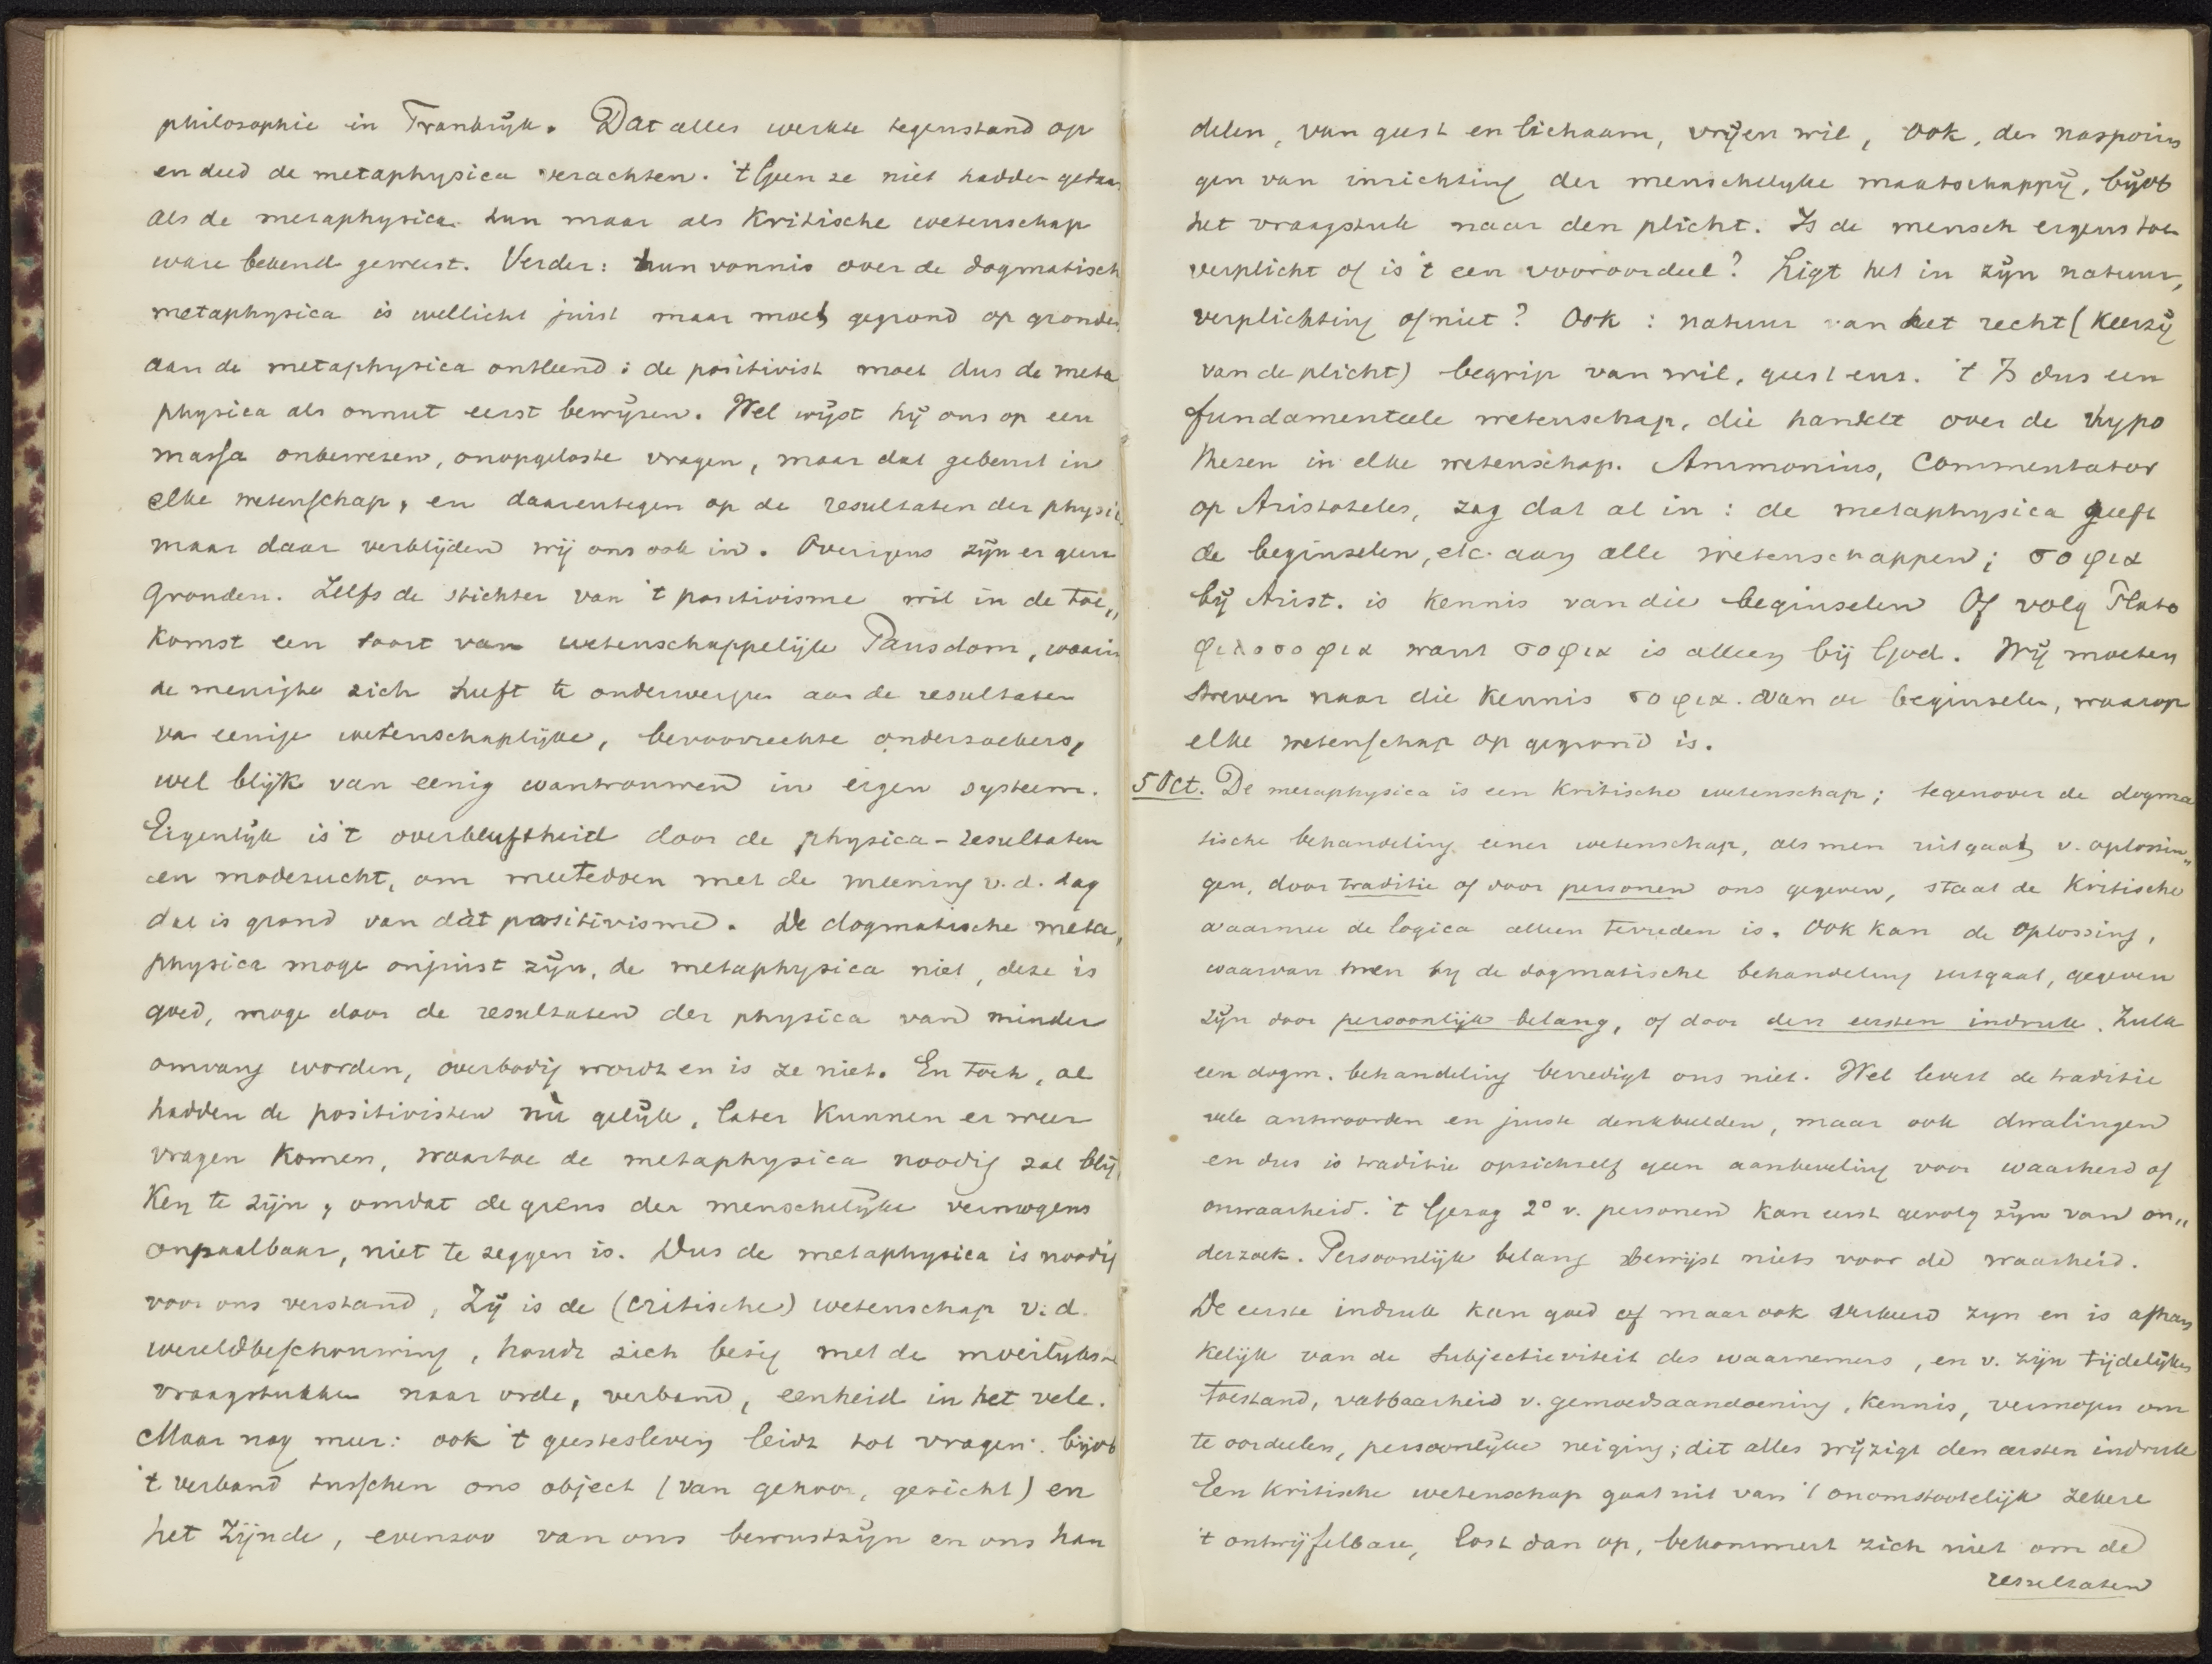 philosophie in Frankrijk. Dat alles werkte tegenstand op
en deed de metaphysica verachten. 't Geen ze niet hadden gedaan
als de metaphysica hun maar als kritische wetenschap
ware bekend geweest. Verder: hun vonnis over de dogmatisch
metaphysica is wellicht juist maar moet gegrond op gronden
aan de metaphysica ontleend: de positivist moet dus de meta
physica als onnut eerst bewijzen. Wel wijst hij ons op een
massa onbewezen, onopgeloste vragen, maar dat gebeurt in
elke wetenschap, en daarentegen op de resultaten der physic
maar daar verblijden wij ons ook in. Overigens zijn er geen
gronden. Zelfs de stichter van 't positivisme wil in de toe„
komst een soort van wetenschappelijk Pausdom, waarin
de menigte zich heeft te onderwerpen aan de resultaten
va eenige wetenschaplijke, bevoorrechte onderzoekers,
wel blijk van eenig wantrouwen in eigen systeem.
Eigenlijk is 't overbluftheid door de physica-resultaten
en modezucht, om meetedoen met de meening v.d. dag
dat is grond van dàt positivisme. De dogmatische meta„
physica moge onjuist zijn, de metaphysica niet, deze is
goed, moge door de resultaten der physica van minder
omvang worden, overbodig wordt en is ze niet. En toch, al
hadden de positivisten nù gelijk, later kunnen er weer
vragen komen, waartoe de metaphysica noodig zal blij„
ken te zijn, omdat de grens der menschelijke vermogens
onpaalbaar, niet te zeggen is. Dus de metaphysica is noodig
voor ons verstand, Zij is de (critische) wetenschap v.d.
wereldbeschouwing, houdt zich bezig met de moeilijkste
vraagstukken naar orde, verband, eenheid in het vele.
Maar nog meer: ook 't geestesleven leidt tot vragen: bijvb
't verband tusschen ons object (van gehoor, gezicht) en
het zijnde, evenzoo van ons bewustzijn en ons han
delen, van geest en lichaam, vrijen wil, ook, der nasporin
gen van inrichting der menschelijke maatschappij, bijvb
het vraagstuk naar den plicht. Is de mensch ergens toe
verplicht of is 't een vooroordeel? Ligt het in zijn natuur,
verplichting of niet? Ook: natuur van het recht (keerzij
van de plicht) begrip van wil, geest enz. 't Is dus een
fundamenteele wetenschap, die handelt over de hypo
thesen in elke wetenschap. Ammonius, commentator
op Aristoteles, zag dat al in: de metaphysica geeft
de beginselen, etc. aan alle wetenschappen; σοφια
bij Arist. is kennis van die beginselen Of volg Plato
φιλοσοφια want σοφια is alleen bij God. Wij moeten
streven naar die kennis σοφια. van de beginselen, waarop
elke wetenschap op gegrond is.
5 Oct. De metaphysica is een kritische wetenschap; tegenover de dogma
tische behandeling eener wetenschap, als men uitgaat v. oplossin„
gen, door traditie of door personen ons gegeven, staat de kritische
waarmee de logica alleen tevreden is. Ook kan de oplossing,
waarvan men bij de dogmatische behandeling uitgaat, gegeven
zijn door persoonlijk belang, of door den eersten indruk. Zulk
een dogm. behandeling bevredigt ons niet. Wel levert de traditie
vele antwoorden en juiste denkbeelden, maar ook dwalingen
en dus is traditie opzichzelf geen aanbeveling voor waarheid of
onwaarheid. 't Gezag 2° v. personen kan eerst gevolg zijn van on„
derzoek. Persoonlijk belang bewijst niets voor de waarheid.
De eerste indruk kan goed of maar ook verkeerd zyn en is afhan
kelijk van de subjectieviteit des waarnemers, en v. zijn tijdelijken
toestand, vatbaarheid v. gemoedsaandoening, kennis, vermogen om
te oordeelen, persoonlijke neiging; dit alles wijzigt den eersten indruk
Een kritische wetenschap gaat uit van 't onomstootelijk zekere
't ontwijfelbare, lost dan op, bekommert zich niet om de
resultaten